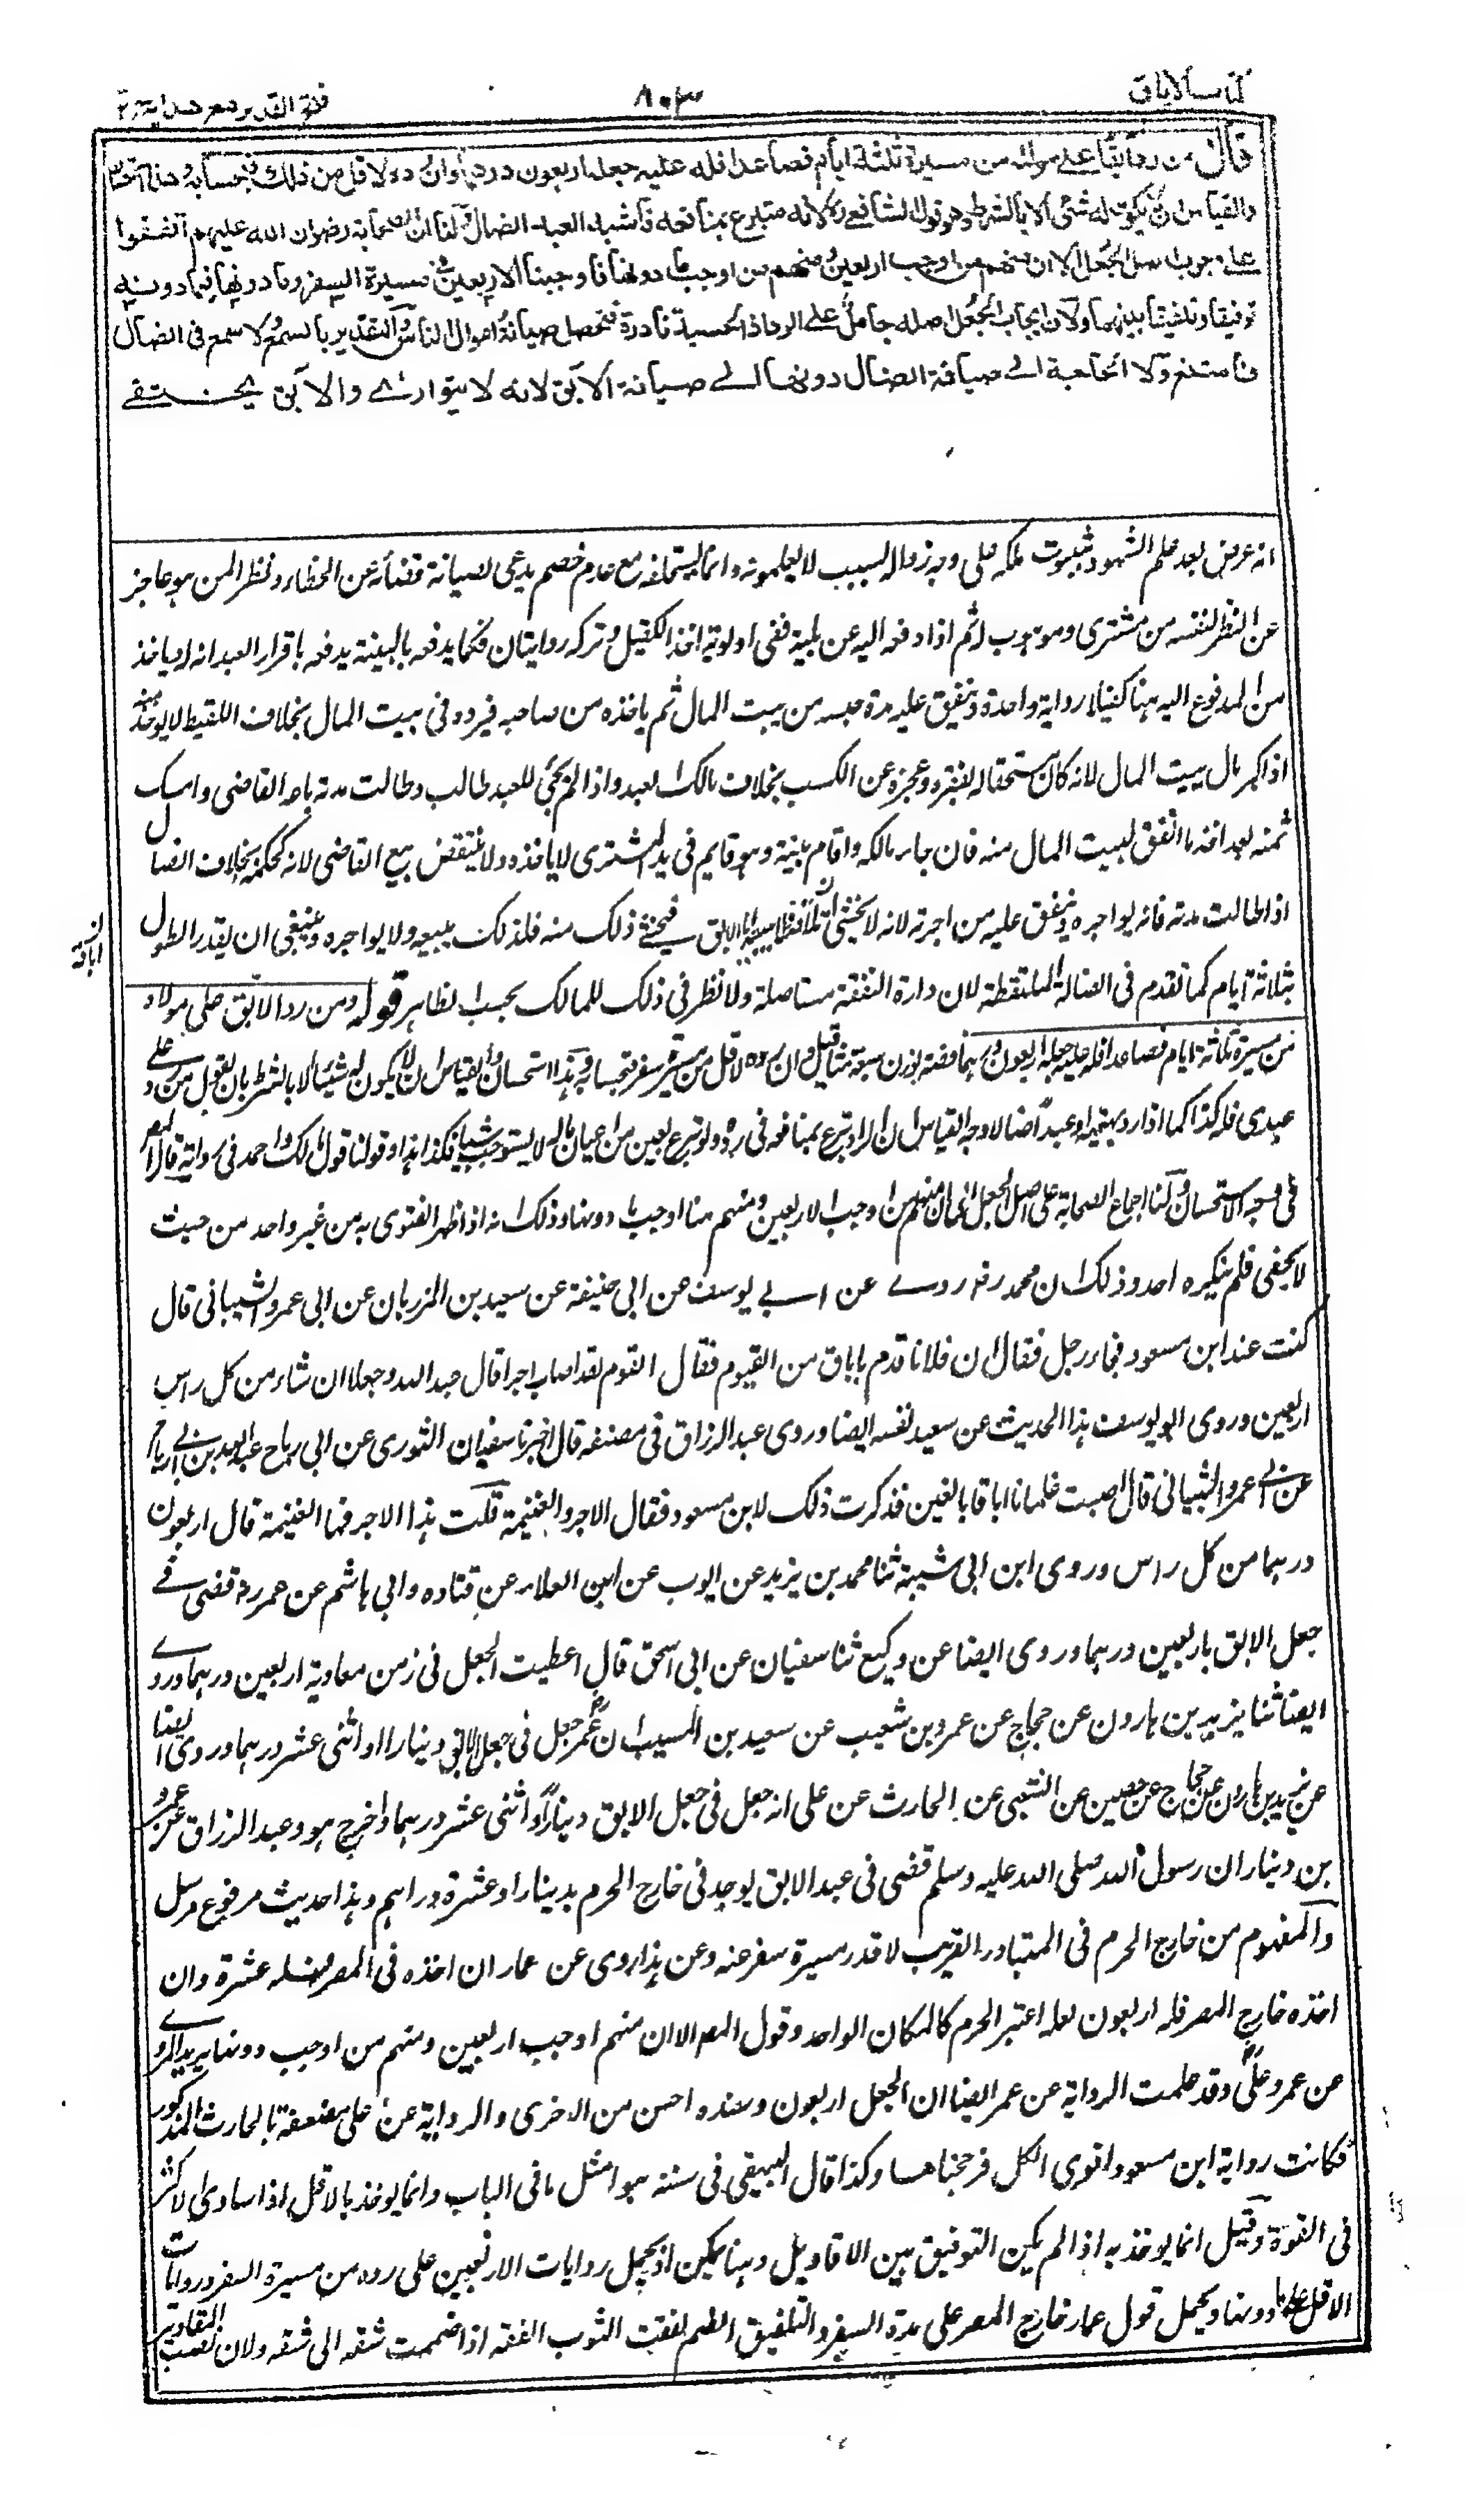 كتاب الاباق
٨٠٣
فتح القدير مع هداية ج٢
قال من رد آبقا على مولاه من مسيرة ثلثة ايام فصاعدا فله عليه جعله اربعون درهما وان رده لاقل من ذلك فبحسابه وهذا استحسان
والقياس ان لا يكون له شئ الا بالشرط وهو قول الشافعي رح لانه متبرع بمنافعه فاشبه العبد الضال ولنا ان الصحابة رضوان الله عليهم اتفقوا
على وجوب اصل الجعل الا ان منهم من اوجب اربعين ومنهم من اوجب ما دونها فاوجبنا الاربعين في مسيرة السفر وما دونها فيما دونه
توفيقا وتلفيقا بينهما ولان ايجاب الجعل اصله حامل على الرد اذ الحسبة نادرة فتحصل صيانة اموال الناس والتقدير بالسمع ولا سمع في الضال
فامتنع ولان الحاجة الى صيانة الضال دونها الى صيانة الآبق لانه لا يتوارى والآبق يختفى
انه عرض بعد علم الشهود بثبوت ملكه على وجه زوال السبب لا يعلمونه وانما يستحلفه مع عدم خصم يدعى لصيانة قضائه عن الخطاء ونظر المن هو عاجز
عن النظر لنفسه من مشترى وموهوب له ثم اذا دفعه اليه عن بينة ففى اولوية اخذ الكفيل وتركه روايتان فكما يدفعه بالبينة يدفعه باقرار العبد انه له ياخذ
من المدفوع اليه هنا كفيلا رواية واحدة وينفق عليه مدة حبسه من بيت المال ثم ياخذه من صاحبه فيرده فى بيت المال بخلاف اللقيط لا يوخذ منه
اذا كبر مال بيت المال لانه كان مستحقا له لفقره وعجزه عن الكسب بخلاف مالك العبد واذا لم يجئ للعبد طالب وطالت مدته باعه القاضى وامسك
ثمنه بعد اخذ ما انفق لبيت المال منه فان جاء مالكه واقام بينة وهو قايم فى يد المشترى لا ياخذه ولا ينتقض بيع القاضى لانه كحكمه بخلاف الضال
اذا طالت مدته فانه يواجره وينفق عليه من اجرته لانه لا يخشى اباقه فيخشى ذلك منه فلذلك يبيعه ولا يواجره وينبغى ان يقدر الطول
بثلاثة ايام كما تقدم فى الضالة الملتقطة لان دارة النفقة مستاصلة ولا نظر فى ذلك للمالك بحسب الظاهر قوله ومن رد الآبق على مولاه
من مسيرة ثلاثة ايام فصاعدا فله عليه جعله اربعون درهما فضة بوزن سبعة مثاقيل وان رده لاقل من مسيرة سفر فبحسابه وهذا استحسان والقياس ان لا يكون له شئ الا بالشرط بان يقول من رد على
عبدى فله كذا كما اذا رد بهيمة او عبدا ضالا وجه القياس ان الراد تبرع بمنافعه فى رده ولو تبرع بعين من اعيان ماله لا يستوجب شيئا فكذا هذا وقولنا قول مالك واحمد فى رواية قال المص
فى وجه الاستحسان ولنا اجماع الصحابة على اصل الجعل الا ان منهم من اوجب الاربعين ومنهم من اوجب ما دونها وذلك انه اذا ظهر الفتوى به من غير واحد من حيث
لا يخفى فلم ينكره احد وذلك ان محمد رح روى عن ابى يوسف عن ابى حنيفة عن سعيد بن المرزبان عن ابى عمرو الشيبانى قال
كنت عند ابن مسعود فجاء رجل فقال ان فلانا قدم باباق من القيوم فقال القوم لقد اصاب اجرا قال عبد الله وجعلا ان شاء من كل راس
اربعين وروى ابو يوسف هذا الحديث عن سعيد نفسه ايضا وروى عبد الرزاق فى مصنفه قال اخبرنا سفيان الثورى عن ابى رباح عبد الله بن ابى رباح
عن ابى عمرو الشيبانى قال اصبت غلمانا اباقا بالعين فذكرت ذلك لابن مسعود فقال الاجر والغنيمة قلت هذا الاجر فما الغنيمة قال اربعون
درهما من كل راس وروى ابن ابى شيبة ثنا محمد بن يزيد عن ايوب عن ابى العلاء عن قتاده وابى هاشم عن عمر رض قضى فى
جعل الابق باربعين درهما وروى ايضا عن وكيع ثنا سفيان عن ابى اسحق قال اعطيت الجعل فى زمن معاوية اربعين درهما وروى
ايضا ثنا يزيد بن هارون عن حجاج عن عمرو بن شعيب عن سعيد بن المسيب ان عمر رض جعل فى جعل الابق دينارا او اثنى عشر درهما وروى ايضا
عن يزيد بن هارون عن حجاج عن حصين عن الشعبى عن الحارث عن على انه جعل فى جعل الابق دينارا او اثنى عشر درهما واخرج هو وعبد الرزاق عن عمرو
بن دينار ان رسول الله صلى الله عليه وسلم قضى فى عبد الابق يوجد فى خارج الحرم بدينار او عشرة دراهم وهذا حديث مرفوع مرسل
والمفهوم من خارج الحرم فى المتبادر القريب لا قدر مسيرة سفر عنه وعن هذا روى عن عمار ان اخذه فى المصر فله عشرة وان
اخذه خارج المصر فله اربعون لعله اعتبر الحرم كالمكان الواحد وقول المص الا ان منهم اوجب اربعين ومنهم من اوجب دونها يريد المروى
عن عمر وعلى رض وقد علمت الرواية عن عمر ايضا ان الجعل اربعون وسنده احسن من الاخرى والرواية عن على مضعفة بالحارث المذكور
فكانت رواية ابن مسعود اقوى الكل فرجحناها وكذا قال البيهقى فى سننه هو امثل ما فى الباب وانما يوخذ بالاقل اذا ساوى الاكثر
فى القوة وقيل انما يوخذ به اذا لم يكن التوفيق بين الاقاويل وهنا يمكن اذ يحمل روايات الاربعين على رده من مسيرة السفر وروايات
الاقل على ما دونها ويحمل قول عمار خارج المصر على مدة السفر والتلفيق الضم لفقت الثوب الفقه اذا ضممت شقه الى شقه ولان نصب المقادير